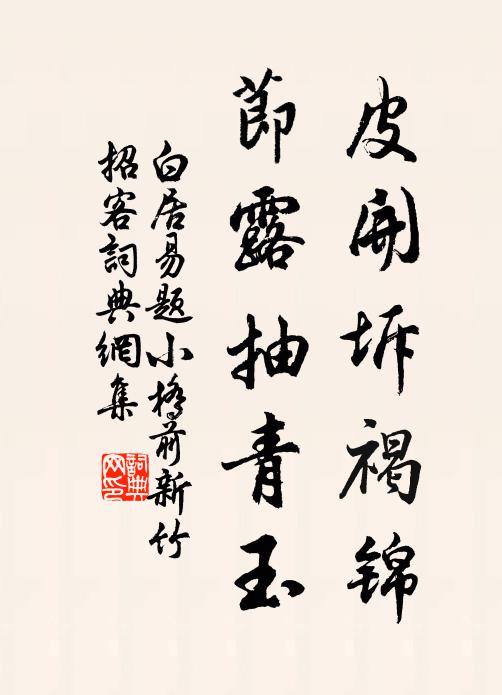 皮開坼褐錦
莭露抽青玉
白居易題小橋前新竹
招客詞典網集
詞典
网印